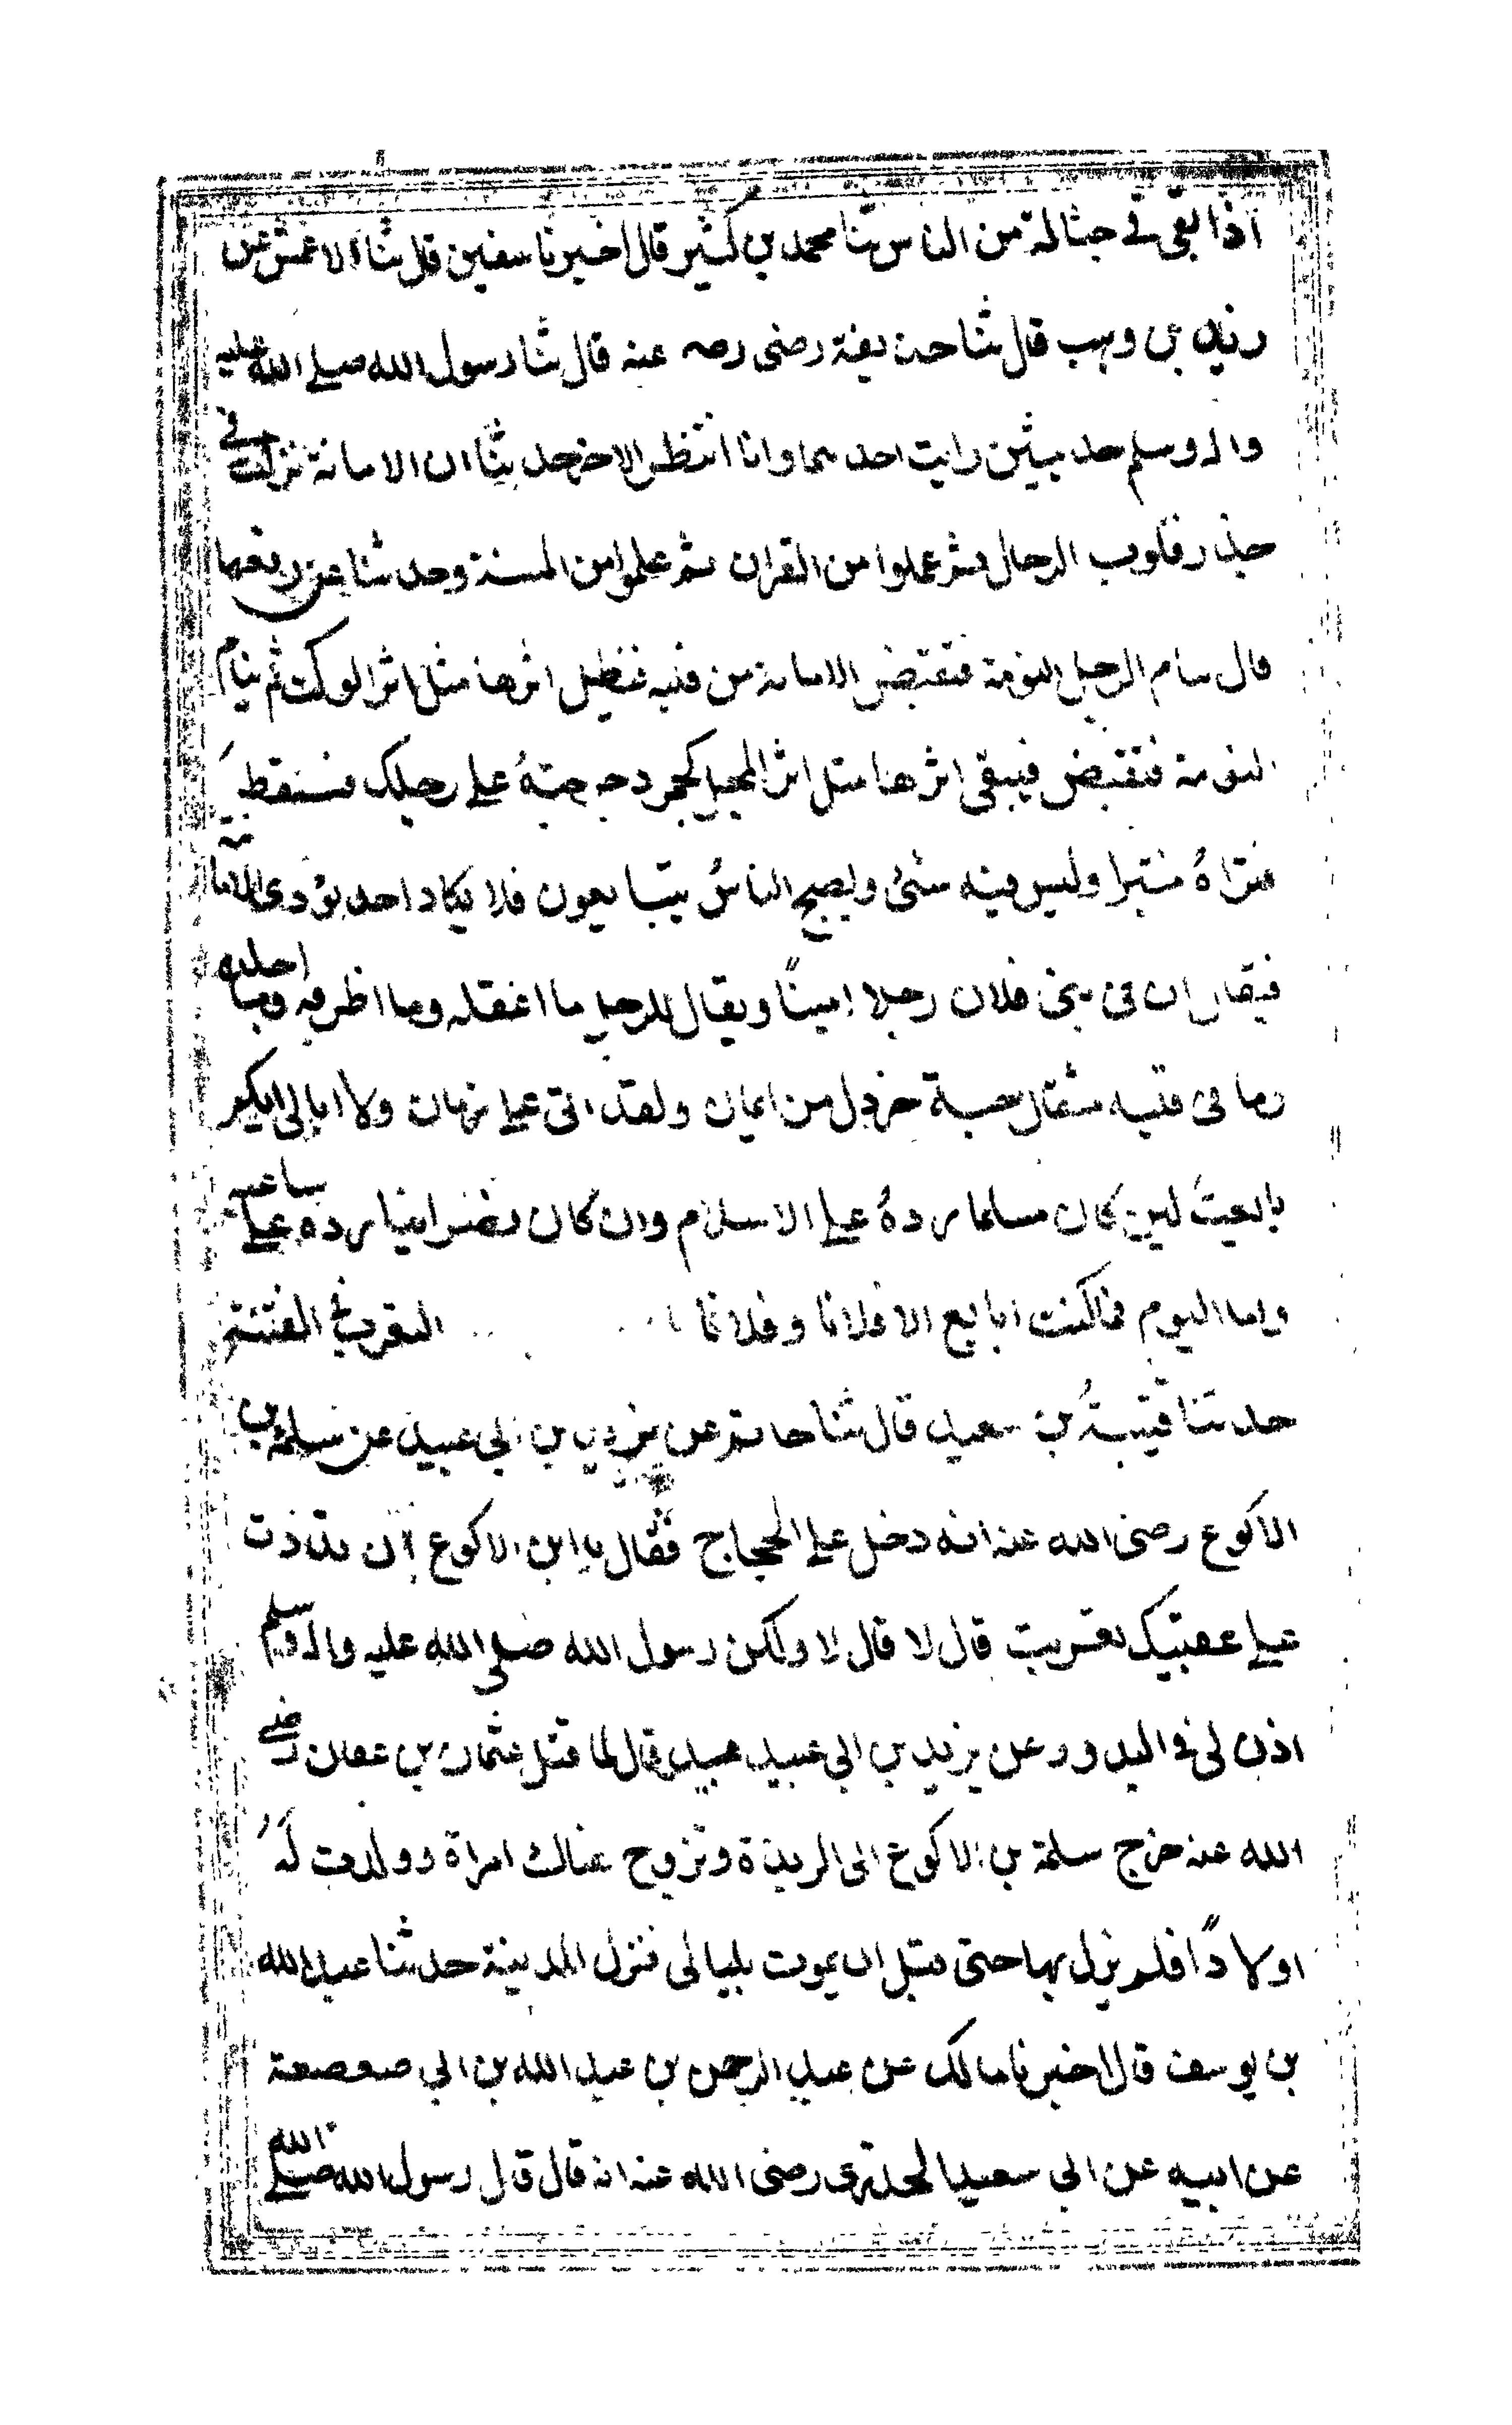 اذا بقى في حثالة من الناس ثنا محمد بن كثير قال اخبرنا سفين قال ثنا الاعمش عن
زيد بن وهب قال ثنا حذيفة رضى عنه قال ثنا رسول الله صلى الله عليه
واله وسلم حديثين رايت احدهما وانا انتظر الاخر حدثنا ان الامانة نزلت في
جذر قلوب الرجال ثم علموا من القران ثم علموا من السنة وحدثنا عن رفعها
قال ينام الرجل النومة فتقبض الامانة من قلبه فتظل اثرها مثل اثر الوكت ثم ينام
النومة فتقبض فيبقى اثرها مثل اثر المجل كجمر دحرجته على رجلك فنفط
فتراه منتبرا وليس فيه شئ ويصبح الناس يتبايعون فلا يكاد احد يؤدى الامانة
فيقال ان فى بنى فلان رجلا امينا ويقال للرجل ما اعقله وما اظرفه وما اجلده
وما فى قلبه مثقال حبة خردل من ايمان ولقد اتى على زمان ولا ابالى ايكم
بايعت لئن كان مسلما رده على الاسلام وان كان نصرانيا رده على ساعيه
واما اليوم فما كنت ابايع الا فلانا وفلانا التعرب في الفتنة
حدثنا قتيبة بن سعيد قال ثنا حاتم عن يزيد بن ابي عبيد عن سلمة بن
الاكوع رضى الله عنه انه دخل على الحجاج فقال يا ابن الاكوع ارتددت
على عقبيك تعربت قال لا قال لا ولكن رسول الله صلى الله عليه واله وسلم
اذن لى في البدو وعن يزيد بن ابي عبيد قال لما قتل عثمان بن عفان رضى
الله عنه خرج سلمة بن الاكوع الى الربذة وتزوج هناك امراة وولدت له
اولادًا فلم يزل بها حتى قبل ان يموت بليالى فنزل المدينة حدثنا عبد الله
بن يوسف قال اخبرنا مالك عن عبد الرحمن بن عبد الله بن ابي صعصعة
عن ابيه عن ابي سعيد الخدرى رضى الله عنه انه قال قال رسول الله صلى الله